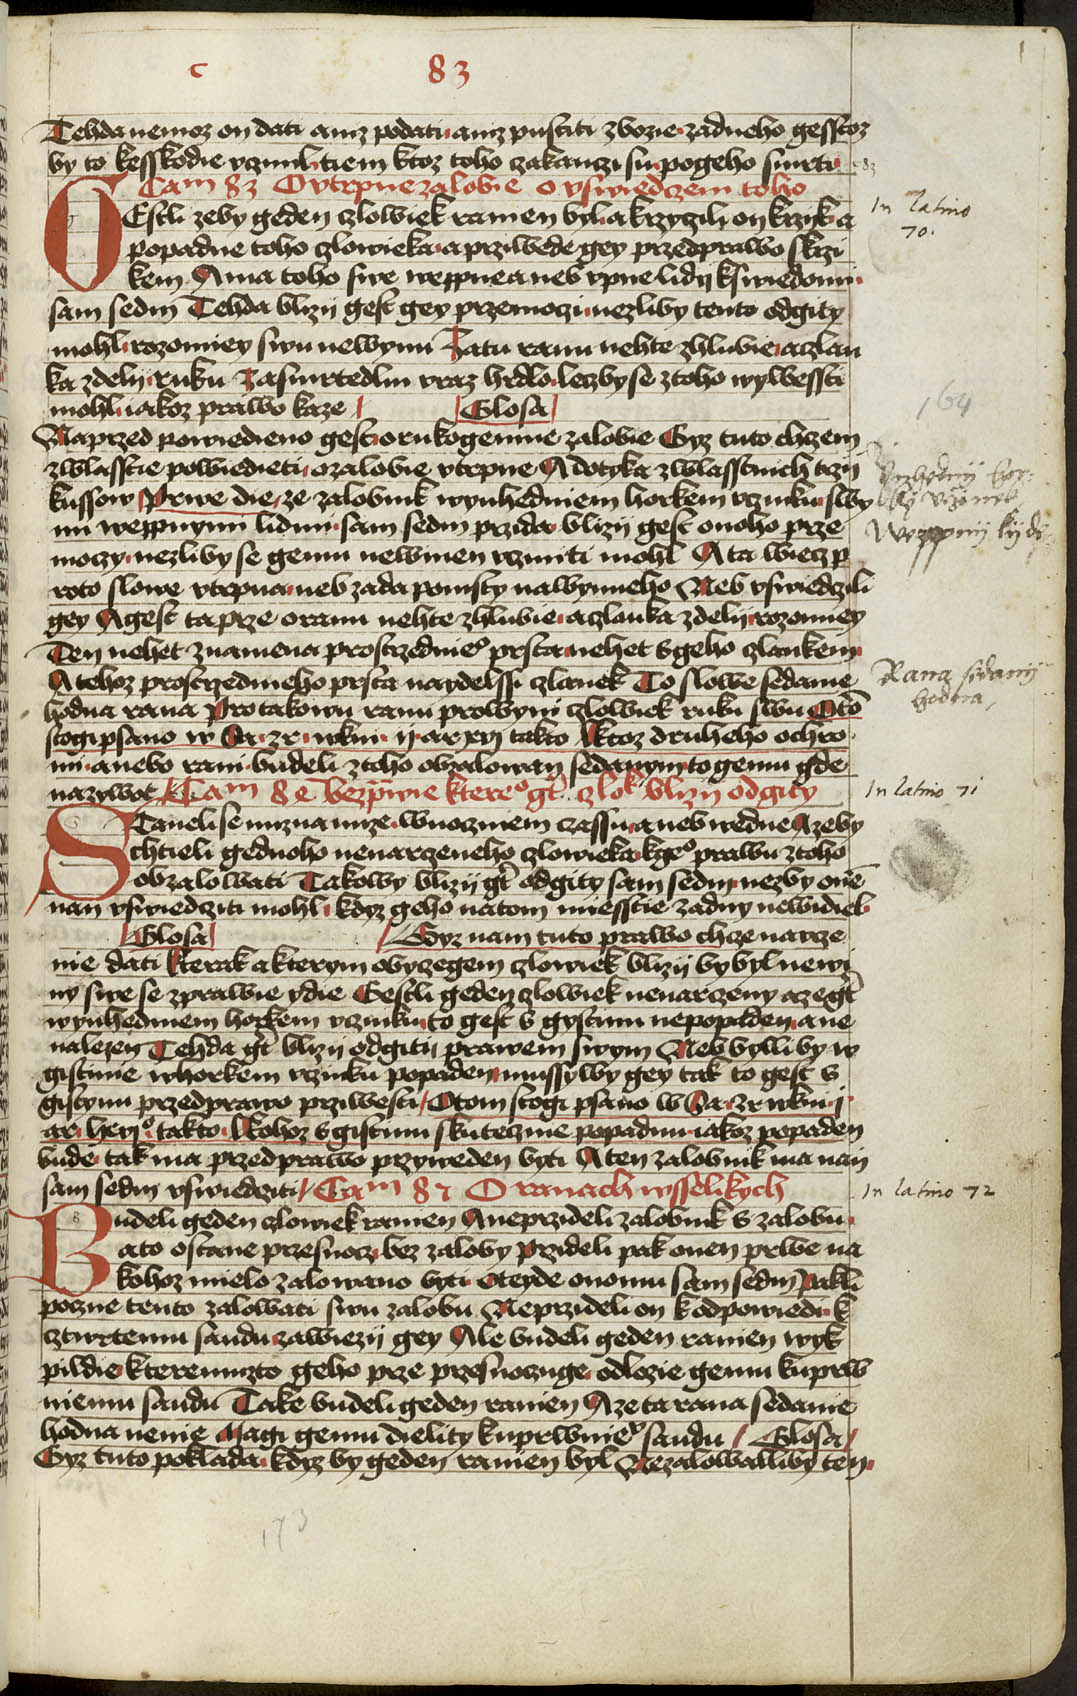 c 83
Tehda nemoz on dati aniz podati aniz pustiti zbozie zadneho gesstoz
by to kesskodie vczinil tiem ktoz toho czakanzi su po geho smrti 83
Cam 83 O vtrpne zalobie o vswiedczeni toho
In Latino
70.
GEstli zeby geden czlowiek ranien byl a krzyczili on krzik a
popadne toho czlowieka a prziwede gey przed prawo s krzi
kem A ma toho swe weppne aneb vpne lidij k swiedomi
sam sedm Tehda blizij gest gey przemoczi nezliby tento odgity
mohl rozomiey swu newynni Za tu ranu nehte zhlubie a czlan
ka zdelij ruku Za smrtedlni vraz hrdlo leczby se z toho wylwessti
mohl iakoz prawo kaze Glosa
Naprzed powiedieno gest o rukogemne zalobie Gyz tuto chczem
zwlasstie powiedieti o zalobie vtrpne A dotyka zwlasstnich trzij
kussow Prwe die ze zalobnik wynhedniem horkem vczinku swy
mi weppnymi lidmi sam sedm przida blizij gest onoho prze
moczy nezliby se gemu newinen vcziniti mohl A ta wiecz p
roto slowe vtrpna neb zada pomsty na wynneho Neb vswiedczili
gey A gest ta prze o ranu nehte zhlubie a czlanka zdelij rozomiey
Ten nehet znamena prostrzednieo prsta nehet s geho czlankem
A tehoz prostrzednieho prsta naydelssi czlanek To slowe sedanie
hodna rana Pro takowu ranu prowyni czlowiek ruku swu O tom
stogi psano w Sa. zr. wkni. ij. ar xvj takto Ktoz druheho ochro
mi anebo rani budeli z toho obzalowan sedanym to gemu gde
na zywot Cam 84 Bezprwie ktereo gt czlok blizij odgity
In latino 71
STaneli se mizna mize w nocznem czassu aneb wedne A zeby
chtieli gednoho nenarczeneho czlowieka kzeo prawu z toho
obzalowati Takowy blizij gt odgity sam sedm nezby onen
nan vswiedcziti mohl kdyz geho na tom miesstie zadny newidiel
Glosa Gyz nam tuto prawo chcze naucze
nie dati kterak a kterym obyczegem czlowiek blizij by byl newi
ny swe se zprawie ydie Gestli geden czlowiek nenarczeny a ze gt
wynhedniem horkem vczinku to gest s gystinu nepopaden a ne
nalezen Tehda gt blizij odgitij prawem swym Neb bylli by w
gistinie w horkem vczinku popaden mussylby gey tak to gest s
gistynu przed prawo prziwesti O tom stogi psano w Sa. zr wkni j
takto Kohoz s gistinu skuteczne popadnu iakoz popaden
bude tak ma przed prawo przyweden byti A ten zalobnik ma nan
sam sedm vswiedcziti Cam 85 O ranach wsselikych
In latino 72
BUdeli geden czlowiek ranien A neprzideli zalobnik s zalobu
a to ostane przes nocz bez zaloby Przideli pak onen prwe na
kohoz mielo zalowano byti oteyde onomu sam sedm Pakli
poczne tento zalowati swu zalobu Neprzideli on k odpowiedi k
cztwrtemu saudu zawiezij gey Ale budeli geden ranien wyk
pildie kteremuzto geho prze przes nocz nge odlozie gemu kuprw
niemu saudu Take budeli geden ranien A ze ta rana sedanie
hodna nenie Magi gemu dielity kuprwnieo saudu Glosa
Gyz tuto poklada kdyz by geden ranien byl Nezalowalliby ten
164
Weppnij lijde
Rana sedanij
hodna
173